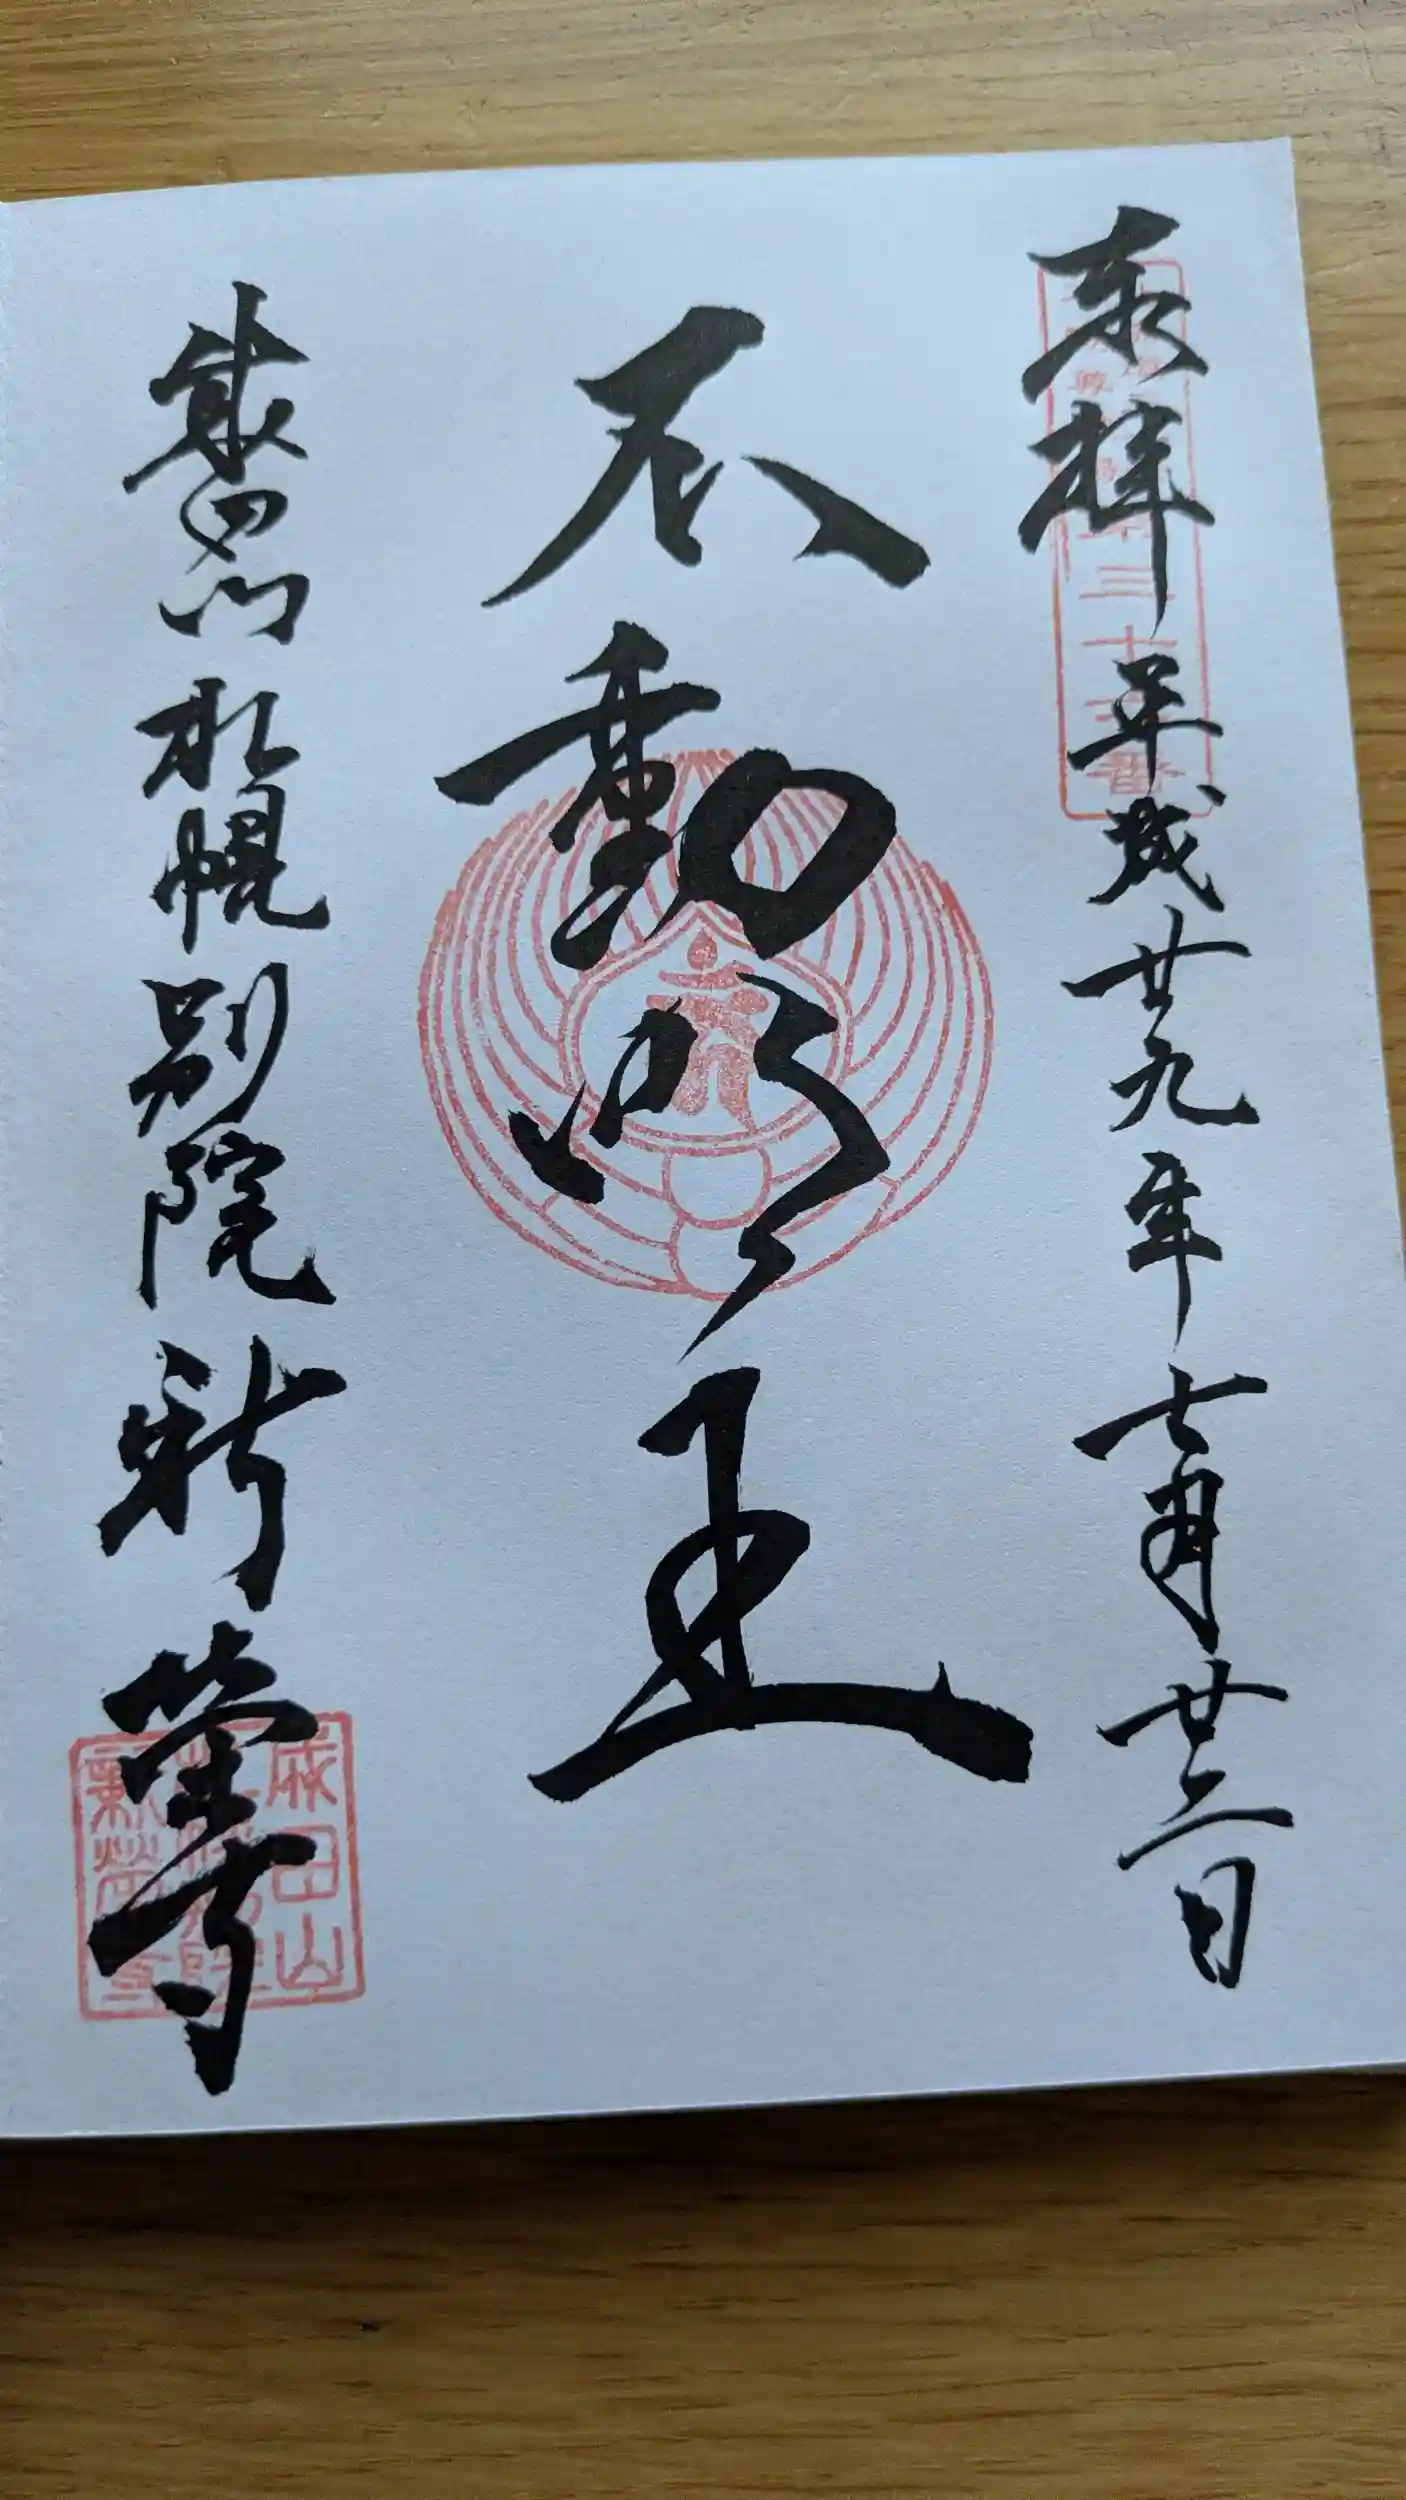 奉拝 平成廿九年七月廿二日
不動明王
成田山 札幌別院 新栄寺
三十三番
成田山
札幌別院
新榮寺